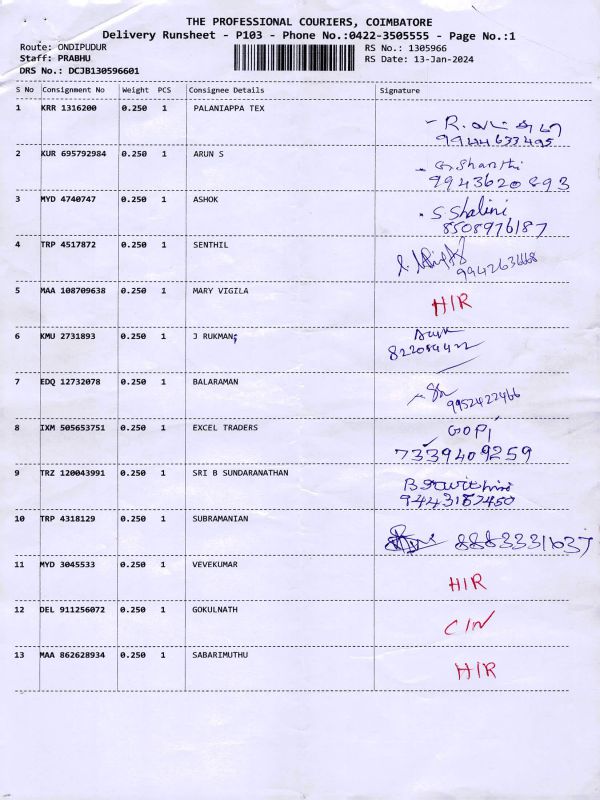 THE PROFESSIONAL COURIERS, COIMBATORE
Delivery Runsheet - P103 - Phone No.:0422-3505555 - Page No.:1
Route: ONDIPUDUR RS No.: 1305966
Staff: PRABHU RS Date: 13-Jan-2024
DRS No.: DCJB130596601
S No Consignment No Weight PCS Consignee Details Signature
1 KRR 1316200 0.250 1 PALANIAPPA TEX
9944633495
2 KUR 695792984 0.250 1 ARUN S
G. Shanthi
9943620893
3 MYD 4740747 0.250 1 ASHOK
S. Shalini
8508976187
4 TRP 4517872 0.250 1 SENTHIL
9942631668
5 MAA 108709638 0.250 1 MARY VIGILA H/R
6 KMU 2731893 0.250 1 J RUKMANI
7 EDQ 12732078 0.250 1 BALARAMAN
9952422466
8 IXM 505653751 0.250 1 EXCEL TRADERS GOPI
7339409259
9 TRZ 120043991 0.250 1 SRI B SUNDARANATHAN
9443157450
10 TRP 4318129 0.250 1 SUBRAMANIAN 8883331637
11 MYD 3045533 0.250 1 VEVEKUMAR H/R
12 DEL 911256072 0.250 1 GOKULNATH C/N
13 MAA 862628934 0.250 1 SABARIMUTHU H/R